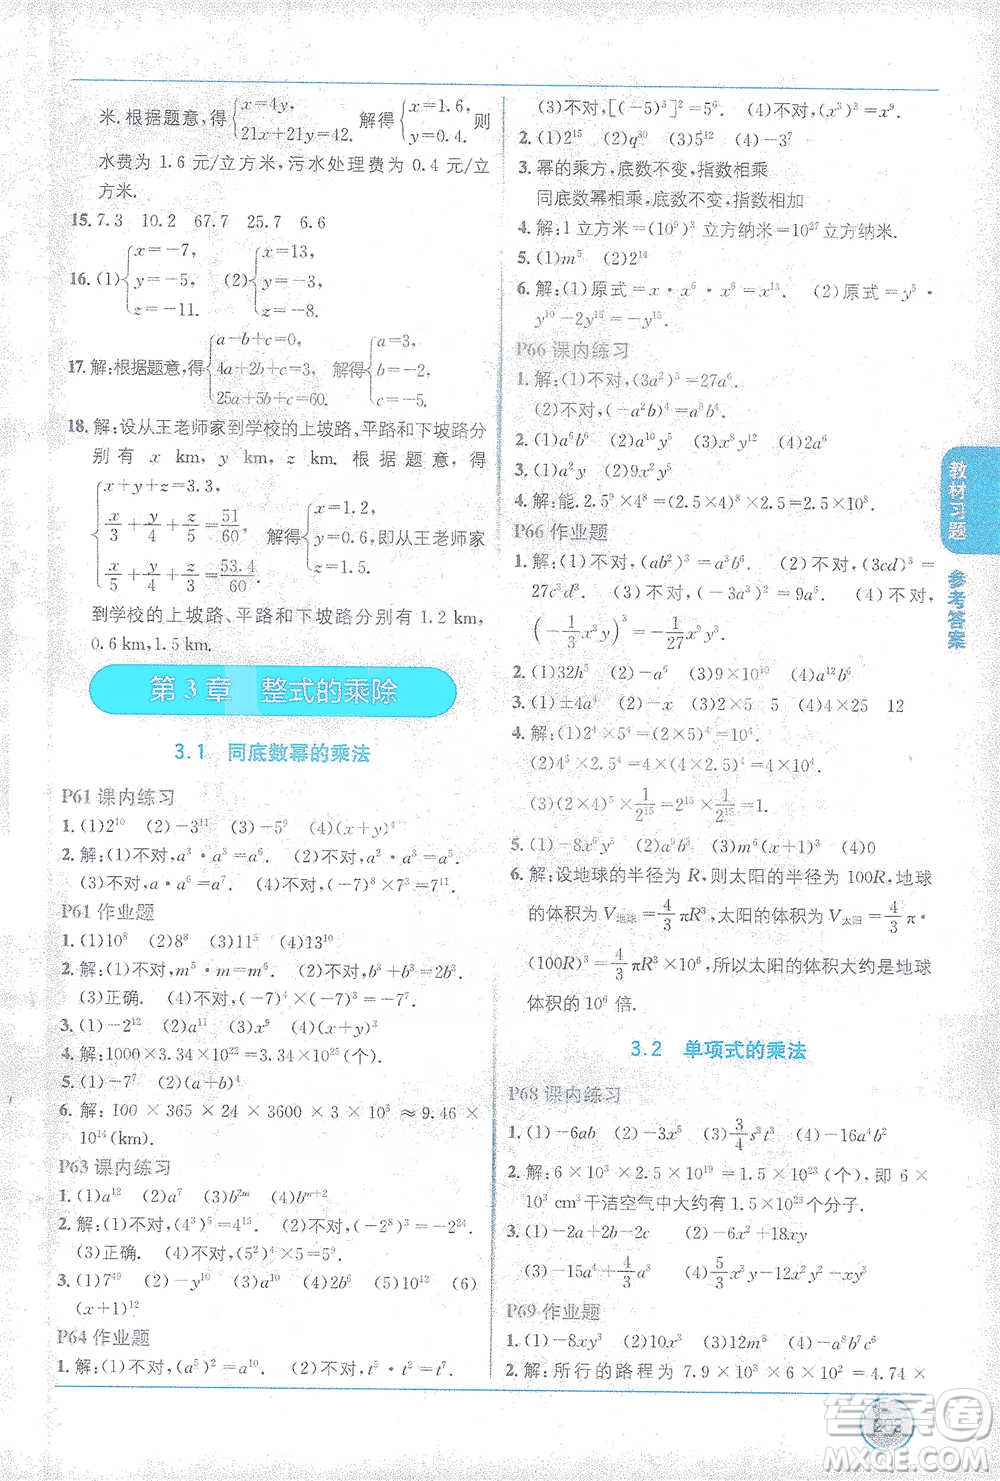 米.根据题意,得{x=4y, 21x+21y=42. 解得{x=1.6, y=0.4. 则
水费为 1.6 元/立方米,污水处理费为 0.4 元/立
方米.
15. 7.3 10.2 67.7 25.7 6.6
16. (1){x=-7, y=-5, z=-11. (2){x=13, y=-5, z=-8.
17. 解:根据题意,得{a-b+c=0, 4a+2b+c=3, 25a+5b+c=60. 解得{a=3, b=-2, c=-5.
18. 解:设从王老师家到学校的上坡路、平路和下坡路分
别有 x km, y km, z km. 根据题意,得
{x+y+z=3.3, x/3+y/4+z/5=51/60, x/5+y/4+z/3=53.4/60. 解得{x=1.2, y=0.6, z=1.5. 从王老师家
到学校的上坡路、平路和下坡路分别有 1.2 km,
0.6 km,1.5 km.
第 3 章 整式的乘除
3.1 同底数幂的乘法
P61 课内练习
1. (1)2¹⁰ (2)-3¹¹ (3)-5⁹ (4)(x+y)⁴
2. 解:(1)不对,a³·a³=a⁶. (2)不对,a³·a³=a⁶.
(3)不对,a·a³=a⁴. (4)不对,7⁸×7³=7¹¹.
P61 作业题
1. (1)10⁸ (2)8⁸ (3)2¹¹ (4)13¹⁰
2. 解:(1)不对,m⁵·m⁵=m¹⁰. (2)不对,b³+b³=2b³.
(3)正确. (4)不对,(-7)⁴×(-7)³=(-7)⁷.
3. (1)-2¹² (2)a¹¹ (3)x⁹ (4)(x+y)⁷
4. 解:1000×3.34×10²²=3.34×10²⁵(个).
5. (1)-7⁷ (2)2⁷
6. 解:100×365×24×3600×3×10⁵≈9.46×
10¹⁴(km).
P63 课内练习
1. (1)a¹² (2)a⁷ (3)b²ᵐ (4)bᵐ⁺²
2. 解:(1)不对,(4³)⁵=4¹⁵. (2)不对,(-2⁸)³=-2²⁴.
(3)正确. (4)不对,(5²)⁴=5⁸.
3. (1)7⁴⁹ (2)-y¹⁰ (3)a¹⁰ (4)2b⁶ (5)x¹² (6)
(x+1)¹²
P64 作业题
1. 解:(1)不对,(a⁵)²=a¹⁰. (2)不对,t⁵·t²=t⁷.
(3)不对,[(-5)³]²=5⁶. (4)不对,(x³)³=x⁹.
2. (1)2¹⁵ (2)q³⁰ (3)5¹² (4)-3⁷
3. 幂的乘方,底数不变,指数相乘
同底数幂相乘,底数不变,指数相加
4. 解:1 立方米=(10⁹)³ 立方纳米=10²⁷立方纳米.
5. (1)m⁵ (2)2¹⁴
6. 解:(1)原式=x·x⁶·x⁶=x¹³. (2)原式=y⁵·
y¹⁰-2y¹⁵=-y¹⁵.
P66 课内练习
1. 解:(1)不对,(3a²)³=27a⁶.
(2)不对,(-a²b)⁴=a⁸b⁴.
2. (1)a⁶b⁶ (2)a¹⁰y⁵ (3)x³y¹² (4)2a⁶
3. (1)a²y² (2)9x²y⁴
4. 解:能. 2.5⁹×4⁸=(2.5×4)⁸×2.5=2.5×10⁸.
P66 作业题
1. 解:(1)不对,(ab²)³=a³b⁶. (2)不对,(3cd)³=
27c³d³. (3)不对,(-3a³)²=9a⁶. (4)不对,
(-1/3 x³y)³=-1/27 x⁹y³.
2. (1)32h⁵ (2)-x³y³ (3)27x⁶ (4)16x⁴y¹²
3. (1)±4a (2)-x (3)2x²y³ (4)25 12
4. 解:(1)2⁴×4⁴×5⁴=2⁴×(2×5)⁴=2⁴×10⁴.
(3)(2³)⁵×1/2¹⁵=2¹⁵×1/2¹⁵=1.
5. (1)-8x⁶y⁵ (2)8a³b³ (3)m⁶(x+1)³ (4)0
6. 解:设地球的半径为 R,则太阳的半径为 100R,地球
的体积为 V地球=4/3 πR³,太阳的体积为 V太阳=4/3 π·
(100R)³=4/3 πR³×10⁶,所以太阳的体积大约是地球
体积的 10⁶ 倍.
3.2 单项式的乘法
P68 课内练习
1. (1)-6ab (2)6x³ (3)3/4 s³t³ (4)-16a⁴b²
2. 解:6×10³×2.5×10¹⁹=1.5×10²³(个),即 6×
10³ cm³干洁空气中大约有 1.5×10²³个分子.
3. (1)-2a+2b (2)-6x²+18xy
(3)-15a⁴+4/3 a³ (4)5/3 x²y-12x²y²-xy
P69 作业题
1. (1)-8xy³ (2)10x³ (3)2m²n (4)-6x³y³
2. 解:所行的路程为 7.9×10³×2×10²=(7.9×
教材习题
参考答案
202
答案圈
MXQE.COM